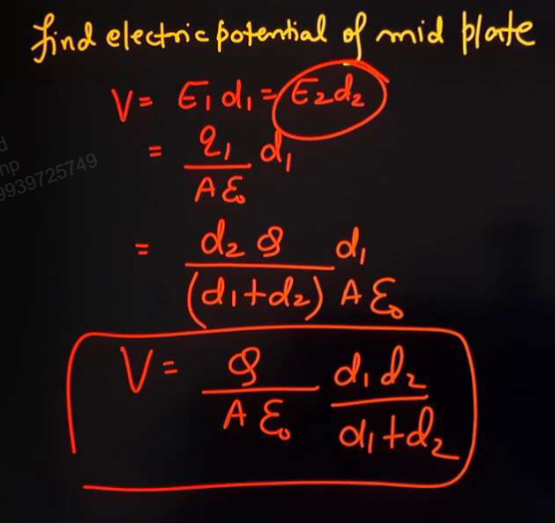 find electric potential of mid plate
V = E₁d₁ = E₂d₂
= q₁/Aε₀ d₁
= d₂ Q/(d₁+d₂) d₁/Aε₀
V = Q/Aε₀ d₁d₂/d₁+d₂
9939725749